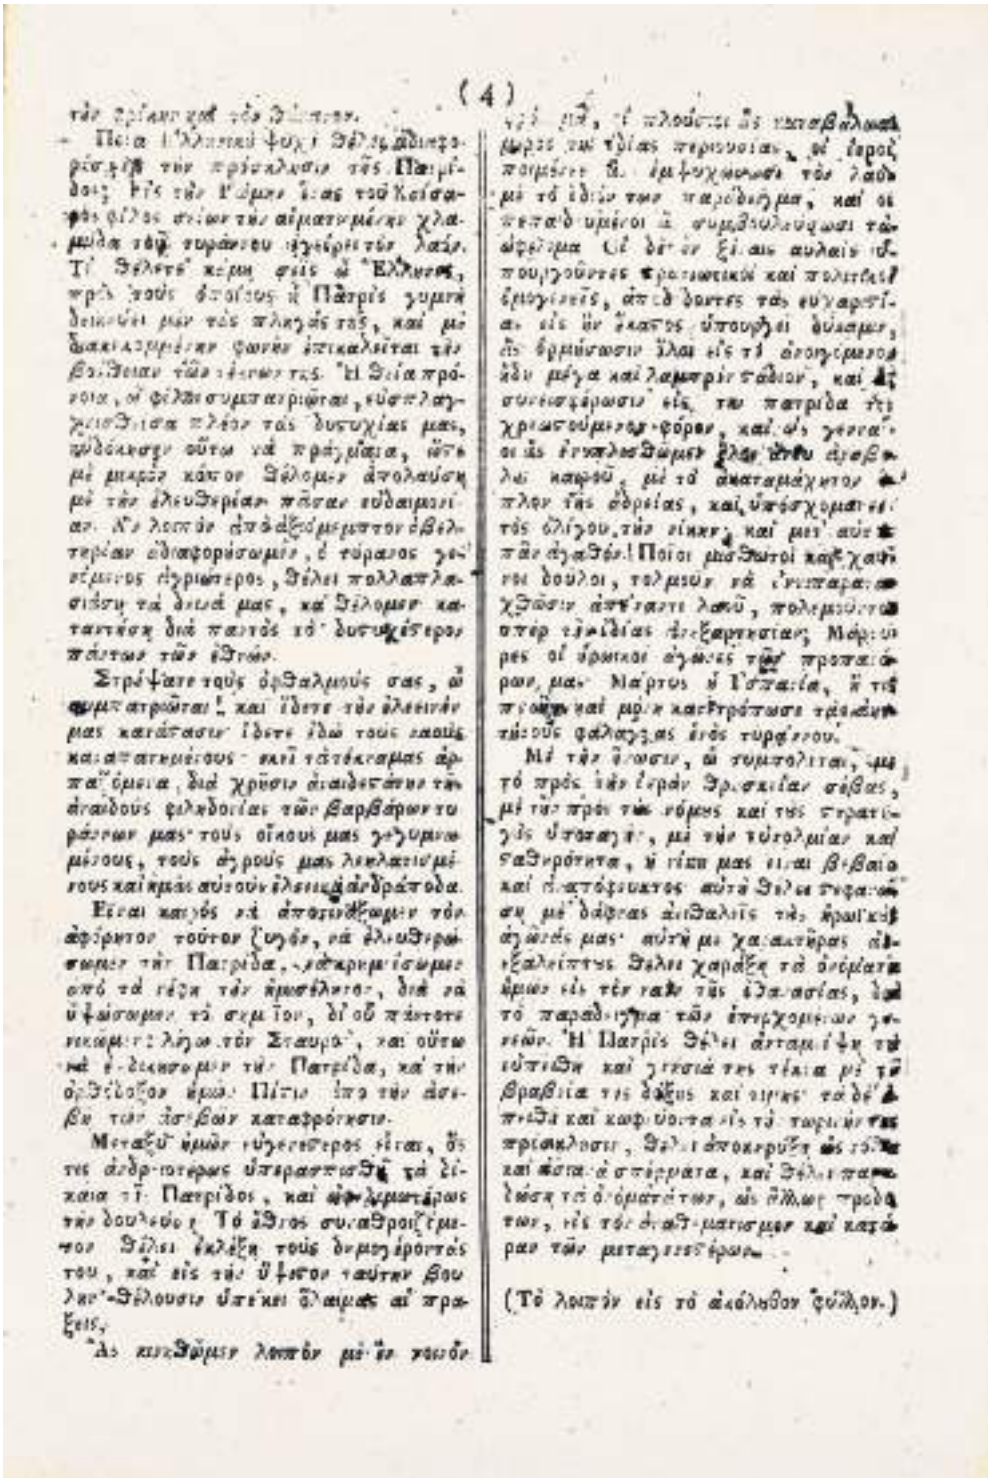 ( 4 )
τὸν
Ποία Ἑλληνικὴ ψυχὴ θέλει ἀδιαφο-
ρήσει εἰς τὴν πρόσκλησιν τῆς Πατρί-
δος; Εἰς τὴν Ῥώμην ἕνας τοῦ Καίσα-
ρος φίλος σείων τὴν αἱματωμένην χλα-
μύδα τοῦ τυράννου ἐγείρει τὸν λαόν.
Τί θέλετε κάμῃ σεῖς ὦ Ἕλληνες,
πρὸς τοὺς ὁποίους ἡ Πατρὶς γυμνὴ
δεικνύει μὲν τὰς πληγάς της, καὶ μὲ
διακεκομμένην φωνὴν ἐπικαλεῖται τὴν
βοήθειαν τῶν τέκνων της. Ἡ θεία πρό-
νοια, ὦ φίλοι συμπατριῶται, εὐσπλαγ-
χνισθεῖσα πλέον τὰς δυτυχίας μας,
ηὐδόκησεν οὕτω τὰ πράγματα, ὥςε
μὲ μικρὸν κόπον θέλομεν ἀπολαύσῃ
μὲ τὴν ἐλευθερίαν πᾶσαν εὐδαιμονί-
αν. Ἂν λοιπὸν ἀπὸ ἀξιόμεμπτον ἀβελ-
τηρίαν ἀδιαφορήσωμεν, ὁ τύρανος γε-
νόμενος ἀγριώτερος, θέλει πολλαπλα-
σιάσῃ τὰ δεινά μας, καὶ θέλομεν κα-
ταντήσῃ διὰ παντὸς τὸ δυτυχέςερον
πάντων τῶν ἐθνῶν.
Στρέψατε τοὺς ὀφθαλμούς σας, ὦ
συμπατριῶται! καὶ ἴδετε τὴν ἐλεεινήν
μας κατάςασιν· ἴδετε ἐδὼ τοὺς ναοὺς
καταπατημένους· ἐκεῖ τὰ τέκνα μας ἁρ-
παζόμενα, διὰ χρῆσιν ἀναιδεςάτην τῆς
ἀναιδοῦς φιληδονίας τῶν βαρβάρων τυ
ράννων μας· τοὺς οἴκους μας γεγυμνω
μένους, τοὺς ἀγροὺς μας λεηλατισμέ-
νους καὶ ἡμᾶς αὐτοὺς ἐλεεινὰ ἀνδράποδα.
Εἶναι καιρὸς νὰ ἀποτινάξωμεν τὸν
ἀφόρητον τοῦτον ζυγόν, νὰ ἐλευθερώ-
σωμεν τὴν Πατρίδα, νὰ κρημνίσωμεν
ἀπὸ τὰ νέφη τὴν ἡμισέληνον, διὰ νὰ
ὑψώσωμεν τὸ σημεῖον, δι' οὗ πάντοτε
νικῶμεν· λέγω τὸν Σταυρόν, καὶ οὕτω
νὰ ἐκδικήσωμεν τὴν Πατρίδα, καὶ τὴν
ὀρθόδοξον ἡμῶν Πίςιν ἀπὸ τὴν ἀσε-
βῆ τῶν ἀσεβῶν καταφρόνησιν.
Μεταξὺ ἡμῶν εὐγενέςερος εἶναι, ὅς
τις ἀνδρειοτέρως ὑπερασπισθῇ τὰ δί-
καια τῆς Πατρίδος, καὶ ὠφελιμωτέρως
τὴν δουλεύσῃ. Τὸ ἔθνος συναθροιζόμε-
νον θέλει ἐκλέξῃ τοὺς δημογέροντάς
του, καὶ εἰς τὴν ὕψιςον ταύτην βου
λὴν θέλουσιν ὑπείκει ὅλαι μας αἱ πρά-
ξεις.
Ἂς κινηθῶμεν λοιπὸν μὲ ἓν κοινὸν
οἱ πλούσιοι ἂς καταβάλωσι
μέρος τῆς ἰδίας περιουσίας, οἱ ἱεροὶ
ποιμένες ἂς ἐμψυχώνωσι τὸν λαὸν
μὲ τὸ ἴδιόν των παράδειγμα, καὶ οἱ
πεπαιδευμένοι ἂς συμβουλεύσωσι τὰ
ὠφέλιμα. Οἱ δὲ ἐν ξέναις αὐλαῖς ὑ-
πουργοῦντες ςρατιωτικοὶ καὶ πολιτικοὶ
ὁμογενεῖς, ἀποδίδοντες τὰς εὐχαριςί-
ας εἰς ἣν ἕκαςος ὑπουργεῖ δύναμιν,
ἂς ὁρμήσωσιν ὅλοι εἰς τὸ ἀνοιγόμενον
ἤδη μέγα καὶ λαμπρὸν ςάδιον, καὶ ἂς
συνεισφέρωσιν εἰς τὴν πατρίδα τὸν
χρεωςούμενον φόρον, καὶ ὡς γενναῖ-
οι ἂς ἐνοπλισθῶμεν ὅλοι ἄνευ ἀναβο-
λῆς καιροῦ, μὲ τὸ ἀκαταμάχητον ὅ-
πλον τῆς ἀνδρείας, καὶ ὑπόσχομαι ἐν-
τὸς ὀλίγου τὴν νίκην, καὶ μετ' αὐτὴν
πᾶν ἀγαθόν! Ποῖοι μισθωτοὶ καὶ χαῦ-
νοι δοῦλοι, τολμοῦν νὰ ἀντιπαρατα-
χθῶσιν ἀπέναντι λαοῦ, πολεμοῦντος
ὑπὲρ τῆς ἰδίας ἀνεξαρτησίας; Μάρτυ-
ρες οἱ ἡρωικοὶ ἀγῶνες τῶν προπατό-
ρων μας· Μάρτυς ἡ Ἱσπανία, ἥ τις
πρώτη καὶ μόνη κατετρόπωσε τὰς ἀητ-
τήτους φάλαγγας ἑνὸς τυράννου.
Μὲ τὴν ἕνωσιν, ὦ συμπολῖται, μὲ
τὸ πρὸς τὴν ἱερὰν θρησκείαν σέβας,
μὲ τὴν πρὸς τοὺς νόμους καὶ τοὺς ςρατη-
γοὺς ὑποταγήν, μὲ τὴν εὐτολμίαν καὶ
ςαθηρότητα, ἡ νίκη μας εἶναι βεβαία
καὶ ἀναπόφευκτος· αὐτὴ θέλει ςεφανώ-
σῃ μὲ δάφνας ἀειθαλεῖς τοὺς ἡρωϊκοὺς
ἀγῶνάς μας· αὐτὴ μὲ χαρακτῆρας ἀν-
εξαλείπτους θέλει χαράξῃ τὰ ὀνόματα
ἡμῶν εἰς τὸν ναὸν τῆς ἀθανασίας, διὰ
τὸ παράδειγμα τῶν ἐπερχομένων γε-
νεῶν. Ἡ Πατρὶς θέλει ἀνταμείψῃ τὰ
εὐπειθῆ καὶ γνήσιά της τέκνα μὲ τὰ
βραβεῖα τῆς δόξης καὶ τιμῆς· τὰ δὲ ἀ-
πειθῆ καὶ κωφεύοντα εἰς τὴν τωρινήν της
πρόσκλησιν, θέλει ἀποκηρύξῃ ὡς νόθα
καὶ ἀσιανὰ σπέρματα, καὶ θέλει παρα-
δώσῃ τὰ ὀνόματά των, ὡς ἄλλων προδο
τῶν, εἰς τὸν ἀναθεματισμὸν καὶ κατά-
ραν τῶν μεταγενεςέρων.
(Τὸ λοιπὸν εἰς τὸ ἀκόλουθον φύλλον.)